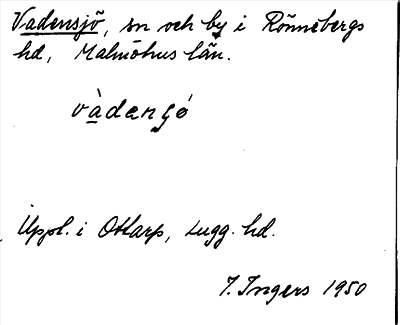 Vadensjö, sn och by i Rönnebergs
hd, Malmöhus län.
vàdensjó
Uppl. i Ottarp, Lugg. hd.
I. Ingers 1950